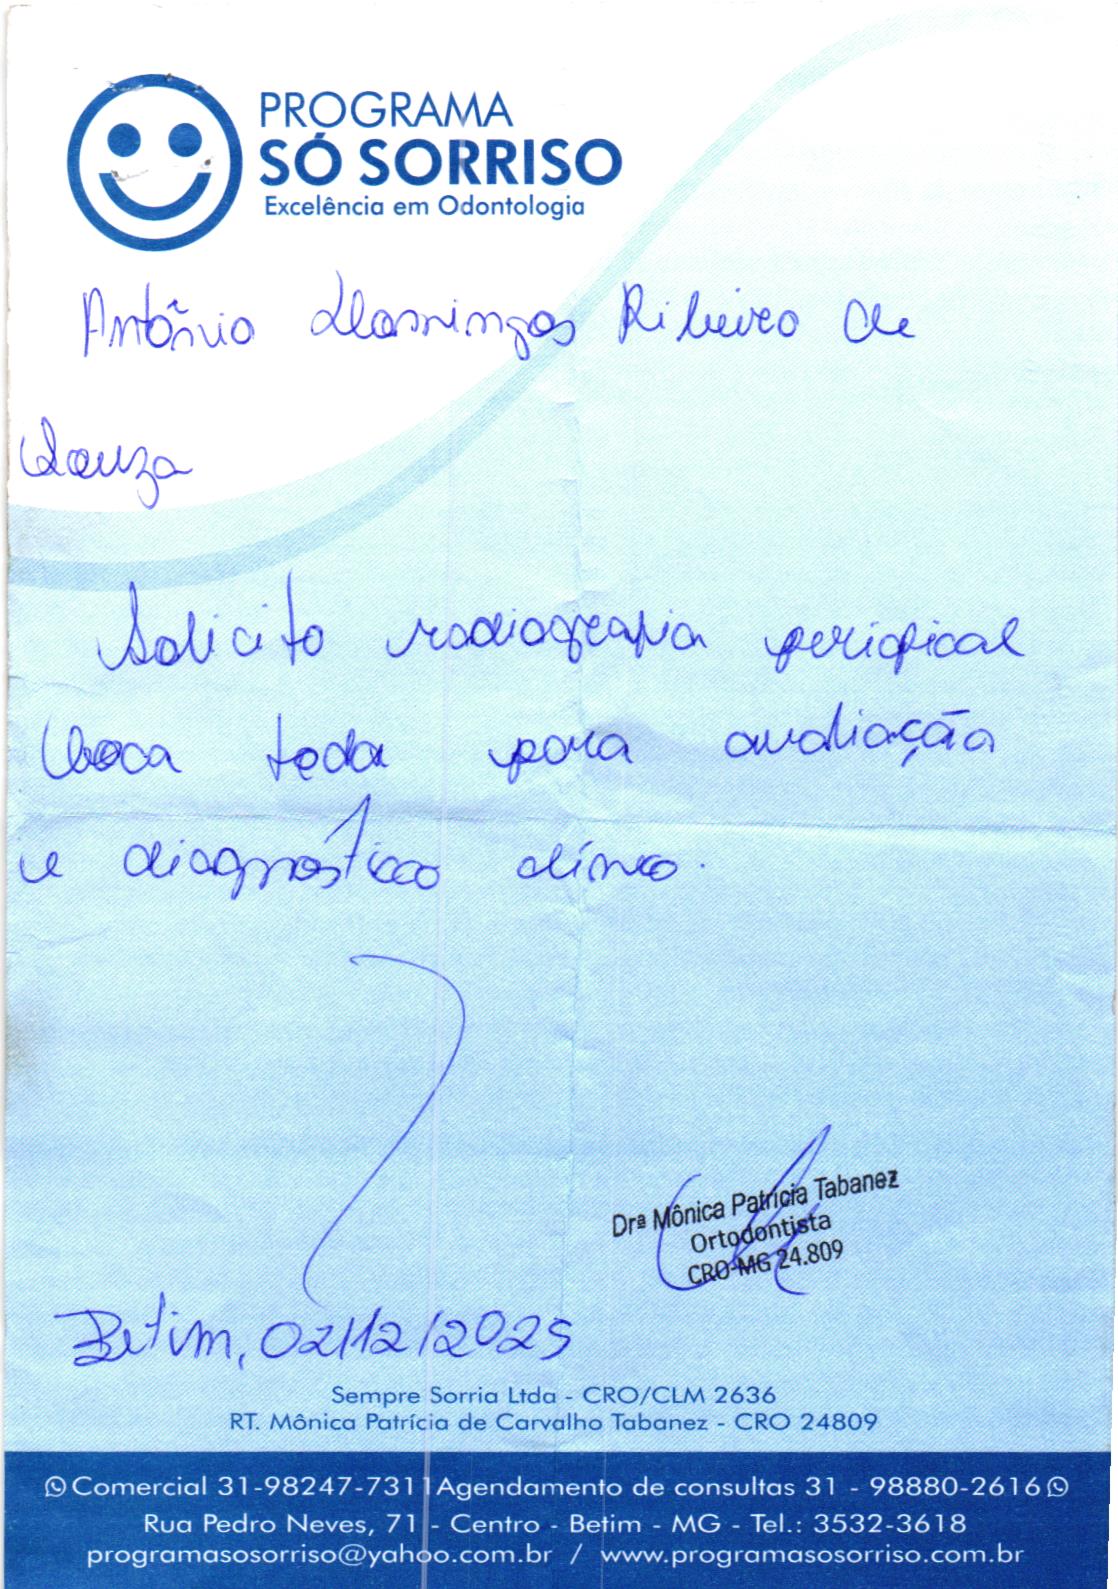 PROGRAMA
SÓ SORRISO
Excelência em Odontologia
Antônio Domingos Ribeiro de
Souza
Solicito radiografia periapical
boca toda para avaliação
e diagnóstico clínico.
Drª Mônica Patrícia Tabanez
Ortodontista
CRO-MG 24.809
Betim, 02/12/2025
Sempre Sorria Ltda - CRO/CLM 2636
RT. Mônica Patrícia de Carvalho Tabanez - CRO 24809
Comercial 31-98247-7311 Agendamento de consultas 31 - 98880-2616
Rua Pedro Neves, 71 - Centro - Betim - MG - Tel.: 3532-3618
programasosorriso@yahoo.com.br / www.programasosorriso.com.br